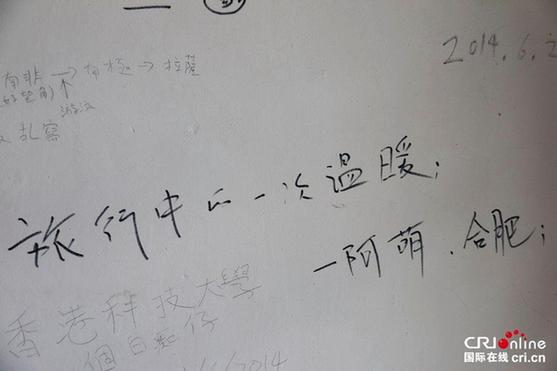 2014.6.
南非→南極→拉薩
(好望角)
游汶
旅行中的一次温暖;
一阿萌.合肥;
香港科技大學
個日 仔
2014
CRI Online
国际在线 cri.cn